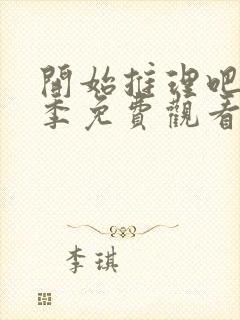 開始推理吧
季免費觀看
李琪